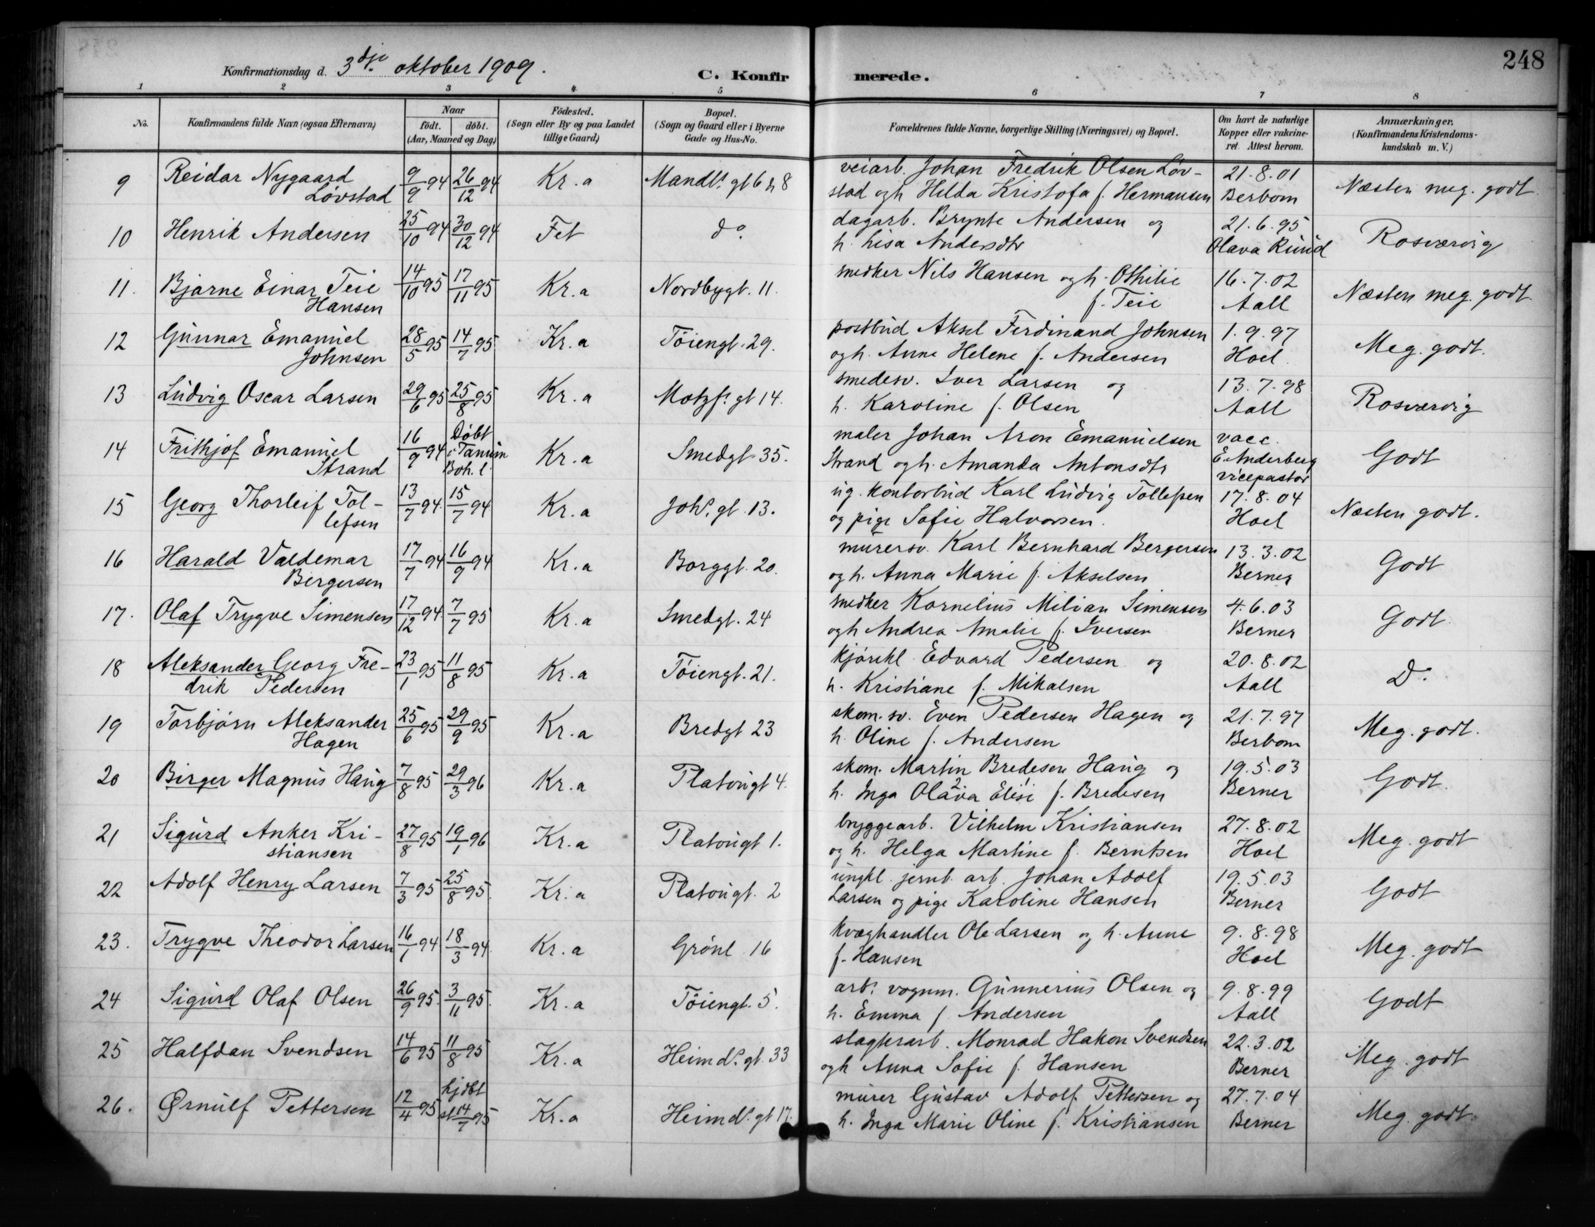 248
Konfirmationsdag d. 3dje oktober 1909.
C. Konfirmerede.
1 2 3 4 5 6 7 8
No. Konfirmandens fulde Navn (ogsaa Efternavn) Naar født. døbt. (Aar, Maaned og Dag) Fødested. (Sogn eller By og paa Landet tillige Gaard) Bopæl. (Sogn og Gaard eller i Byerne Gade og Hus-No. Forældrenes fulde Navne, borgerlige Stilling (Næringsvei) og Bopæl. Om havt de naturlige Kopper eller vakcineret. Attest herom. Anmærkninger. (Konfirmandens Kristendomskundskab m. V.)
9 Reidar Nygaard Løvstad 9/9 94 26/12 94 Kr.a Mandls gt 6 h 8 veiarb. Johan Fredrik Olsen Løv-
stad og h. Hilda Kristofa f. Hermansen 21.8.01 Berbom Næsten meg. godt
10 Henrik Andersen 25/10 94 30/12 94 Fet do dagarb. Brynte Andersen og
h. Lisa Andersdtr 21.6.95 Olava Ruud Rosværdig
11. Bjarne Einar Teie Hansen 14/10 95 17/11 95 Kr.a Nordbygt. 11. snedker Nils Hansen og h. Othilie
f. Teie 16.7.02 Aall Næsten meg. godt
12 Gunnar Emanuel Johnsen 28/5 95 14/7 95 Kr.a Töiengt. 29. postbud Aksel Ferdinand Johnsen
og h. Anne Helene f. Andersen 1.9.97 Hoel Meg. godt.
13 Ludvig Oscar Larsen 29/6 95 25/8 95 Kr.a Motzfs gt 14. smedesv. Iver Larsen og
h. Karoline f. Olsen 13.7.98 Aall Rosværdig
14 Frithjof Emanuel Strand 16/9 94 Døbt i Tanum Boh. l. Kr.a Smedgt 35. maler Johan Aron Emanuelsen
Strand og h. Amanda Antonsdtr vacc. E. Anderberg vicepastor Godt
15 Georg Thorleif Tol-
lefsen 13/7 94 15/7 94 Kr.a Johs. gt. 13. ug. kontorbud Karl Ludvig Tollefsen
og pige Sofie Halvorsen. 17.8.04 Hoel Næsten godt.
16 Harald Valdemar Bergersen 17/7 94 16/9 94 Kr.a Borggt. 20. murersv. Karl Bernhard Bergersen
og h. Anna Marie f. Akselsen 13.3.02 Berner Godt
17. Olaf Trygve Simensen 17/12 94 7/7 95 Kr.a Smedgt. 24 snedker Kornelius Milian Simensen
og h Andrea Amalie f. Iversen 4.6.03 Berner Godt.
18 Aleksander Georg Fre-
drik Pedersen 23/1 95 11/8 95 Kr.a Töiengt. 21. kjørekl. Edvard Pedersen og
h. Kristiane f. Mikalsen 20.8.02 Aall Do
19 Torbjørn Aleksander Hagen 25/6 95 29/9 95 Kr.a Bredgt 23 skom. sv. Even Pedersen Hagen og
h. Oline f. Andersen 21.7.97 Berbom Meg. godt.
20 Birger Magnus Haug 7/8 95 29/3 96 Kr.a Platougt 4. skom. Martin Bredesen Haug og
h. Inga Olava Elise f. Bredesen 19.5.03 Berner Godt.
21 Sigurd Anker Kri-
stiansen 27/8 95 19/1 96 Kr.a Platougt 1. bryggearb. Vilhelm Kristiansen
og h. Helga Martine f. Berntsen 27.8.02 Hoel Meg. godt
22 Adolf Henry Larsen 7/3 95 25/8 95 Kr.a Platougt. 2 ungkl. jernb. arb. Johan Adolf
Larsen og pige Karoline Hansen 19.5.03 Berner Godt
23. Trygve Theodor Larsen 16/1 94 18/3 94 Kr.a Grönl 16 kvæghandler Ole Larsen og h. Anne
f. Hansen 9.8.98 Hoel Meg. godt
24 Sigurd Olaf Olsen 26/9 95 3/11 95 Kr.a Töiengt. 5. arb. vognm. Gunnerius Olsen og
h. Emma f. Andersen 9.8.99 Aall Godt
25 Halfdan Svendsen 14/6 95 11/8 95 Kr.a Heimds. gt. 33 slagterarb. Monrad Hakon Svendsen
og h Anna Sofie f. Hansen 22.3.02 Berner Meg. godt
26. Ørnulf Pettersen 12/4 95 hjdbt st 14/7 95 Kr.a Heimds. gt 17. murer Gustav Adolf Pettersen og
h. Inga Marie Oline f. Kristiansen 27.7.04 Berner Meg. godt.